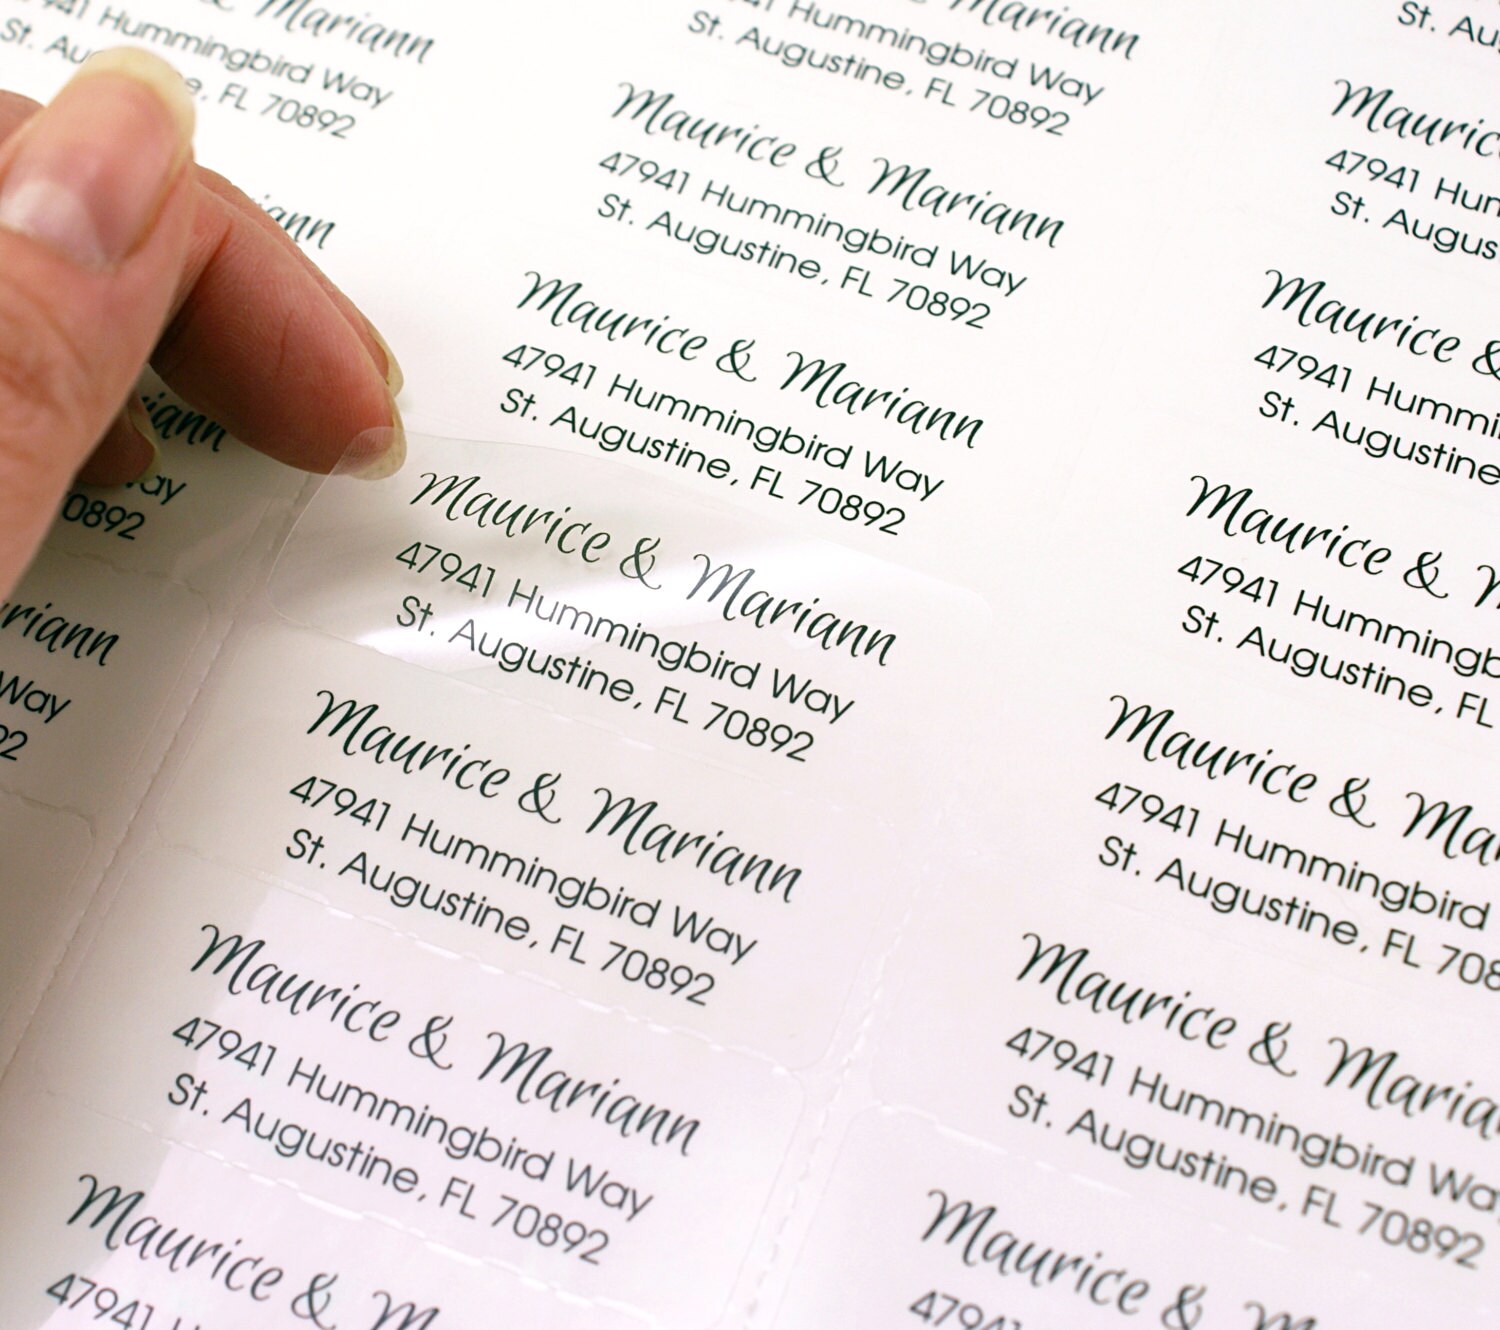 Mariann
47941 Hummingbird Way
St. FL 70892
Mariann
Mariann
Way
70892
Mariann
Way
Mariann
Hummingbird Way
St. Augustine, FL 70892
Maurice & Mariann
47941 Hummingbird Way
St. Augustine, FL 70892
Maurice & Mariann
47941 Hummingbird Way
St. Augustine, FL 70892
Maurice & Mariann
47941 Hummingbird Way
St. Augustine, FL 70892
Maurice & Mariann
47941 Hummingbird Way
St. Augustine, FL 70892
Maurice & Mariann
47941 Hummingbird Way
St. Augustine, FL 70892
Maurice &
47941
St.
Maurice
47941
St.
Maurice &
47941
St. Augustine
Maurice &
47941
St. Augustine, FL
Maurice &
47941 Hummingbird
St. Augustine, FL
Maurice &
47941 Hummingbird
St. Augustine, FL 70892
Maurice &
47941